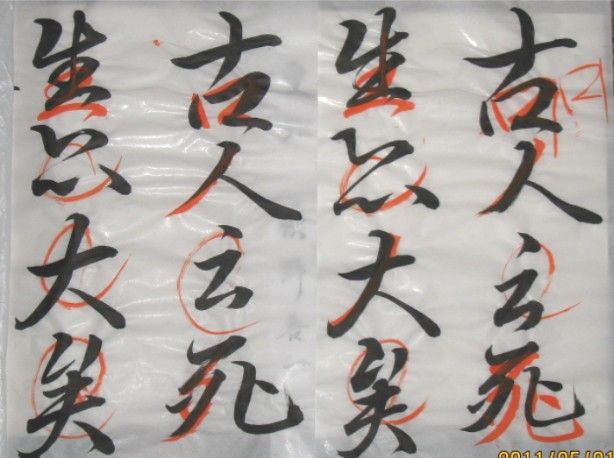 古人云死
生亦大矣
古人云死
生亦大矣